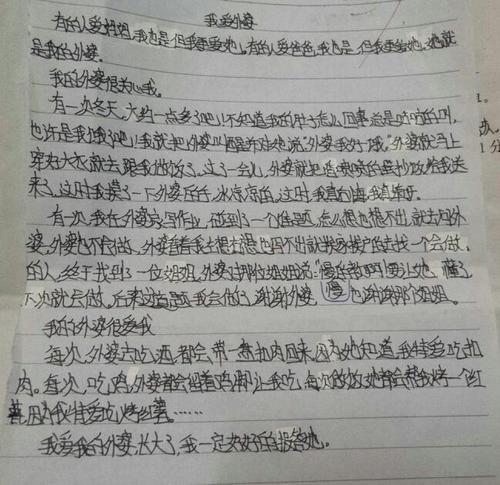 我爱外婆
有的人爱妈妈,我也是但我更爱她。有的人爱爸爸,我也是但我更爱她,她就
是我的外婆。
我的外婆很关心我。
有一次冬天,大约一点多了吧!不知道我的肚子怎么回事总是咕咕的叫,
也许是我饿了吧!我就把外婆叫醒
外婆我好饿。"外婆就马上
穿好大衣就去跟我做饭了。过了一会儿,外婆就把香喷喷的蛋炒饭给我送
来了,这时我摸了一下外婆
手,冰凉凉的,这时我真
有一次,我在外婆家写作业,碰到了一个难题,怎么想也想不出,就去问外
婆,外婆也不会做,外婆看着我
想也
不出就挨家挨户的去找一个会做
的人,终于找到了一位姐姐,外婆对那位姐姐说:"慢
教啊!要让她 懂了
下次就会做。后来这道题我会做了,谢谢外婆,慢 也谢谢那个姐姐。
我的外婆很爱我
每次,外婆去吃酒都会带一些扣肉回来,因为她知道,我特爱吃扣
肉。每次,吃鸡,外婆都会留着鸡脚让我吃,每次做饭她都会帮我烤一个红
薯,因为我特爱吃烤红薯。……
我爱我的外婆,长大了,我一定会好好的报答她。